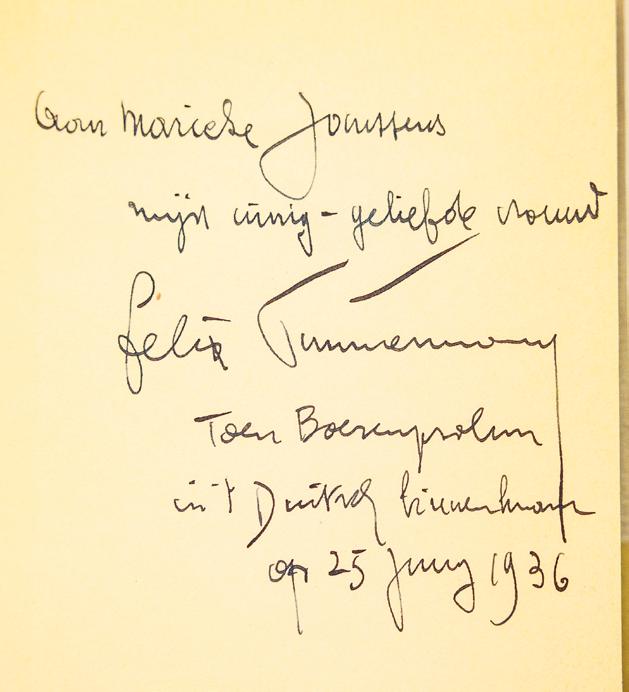 Aan Marieke Janssens
mijn innig-geliefde vrouw
Felix Timmermans
Toen Boerenpsalm
in 't Duitsch binnenkwam
op 25 Juny 1936